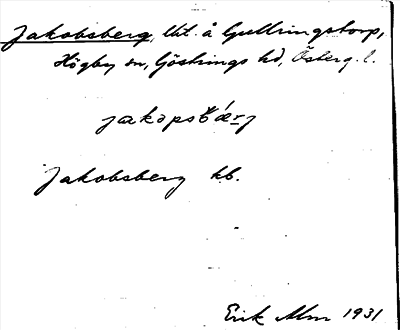 Jakobsberg, lht. å Gullringstorp,
Högby sn, Göstrings hd, Österg. l.
Jakobsberg kb.
Erik Alm 1931